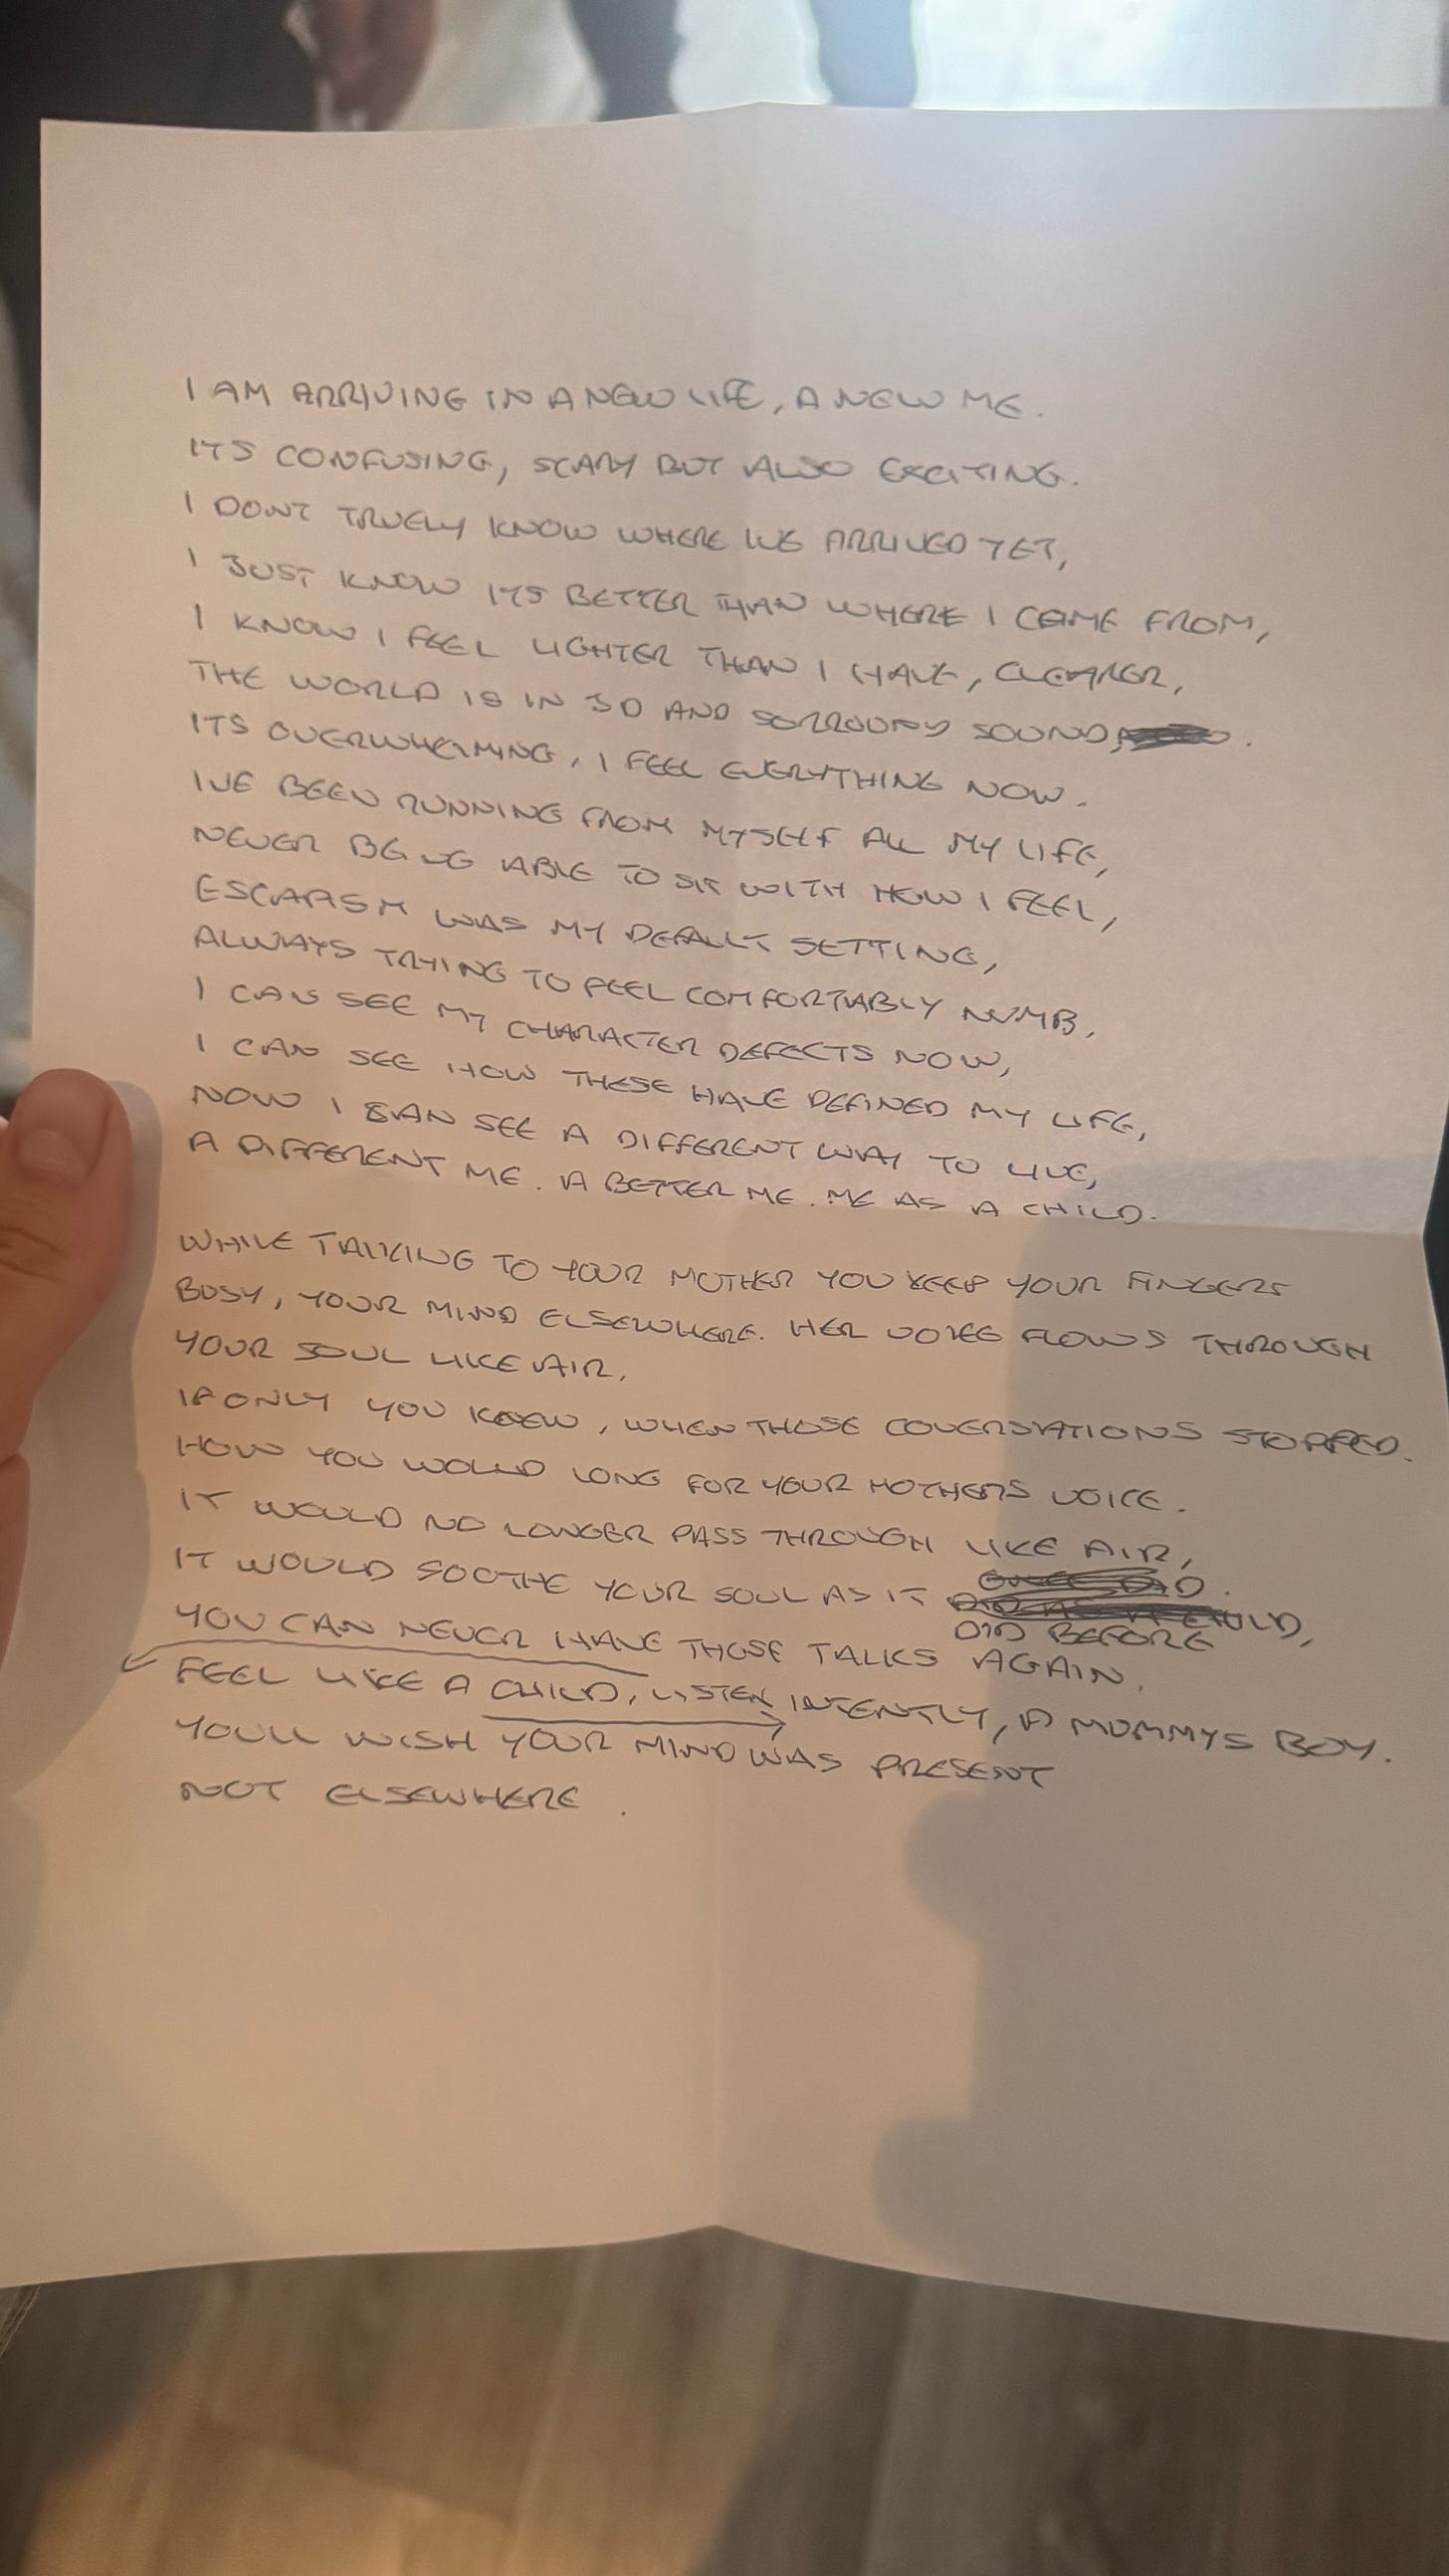 I AM ARRIVING IN A NEW LIFE, A NEW ME.
ITS CONFUSING, SCARY BUT ALSO EXCITING.
I DONT TRUELY KNOW WHERE IVE ARRIVED YET,
I JUST KNOW ITS BETTER THAN WHERE I CAME FROM,
I KNOW I FEEL LIGHTER THAN I HAVE, CLEARER,
THE WORLD IS IN 3D AND SORROUND SOUND,
ITS OVERWHELMING, I FEEL EVERYTHING NOW.
IVE BEEN RUNNING FROM MYSELF ALL MY LIFE,
NEVER BEING ABLE TO SIT WITH HOW I FEEL,
ESCAPISM WAS MY DEFAULT SETTING,
ALWAYS TRYING TO FEEL COMFORTABLY NUMB,
I CAN SEE MY CHARACTER DEFECTS NOW,
I CAN SEE HOW THESE HAVE DEFINED MY LIFE,
NOW I CAN SEE A DIFFERENT WAY TO LIVE,
A DIFFERENT ME. A BETTER ME. ME AS A CHILD.
WHILE TALKING TO YOUR MOTHER YOU KEEP YOUR FINGERS
BUSY, YOUR MIND ELSEWHERE. HER VOICE FLOWS THROUGH
YOUR SOUL LIKE AIR.
IF ONLY YOU KNEW, WHEN THOSE COVERSATIONS STOPPED.
HOW YOU WOULD LONG FOR YOUR MOTHERS VOICE.
IT WOULD NO LONGER PASS THROUGH LIKE AIR,
IT WOULD SOOTHE YOUR SOUL AS IT
DID BEFORE
YOU CAN NEVER HAVE THOSE TALKS AGAIN.
FEEL LIKE A CHILD, LISTEN INTENTLY, A MUMMYS BOY.
YOULL WISH YOUR MIND WAS PRESENT
NOT ELSEWHERE.